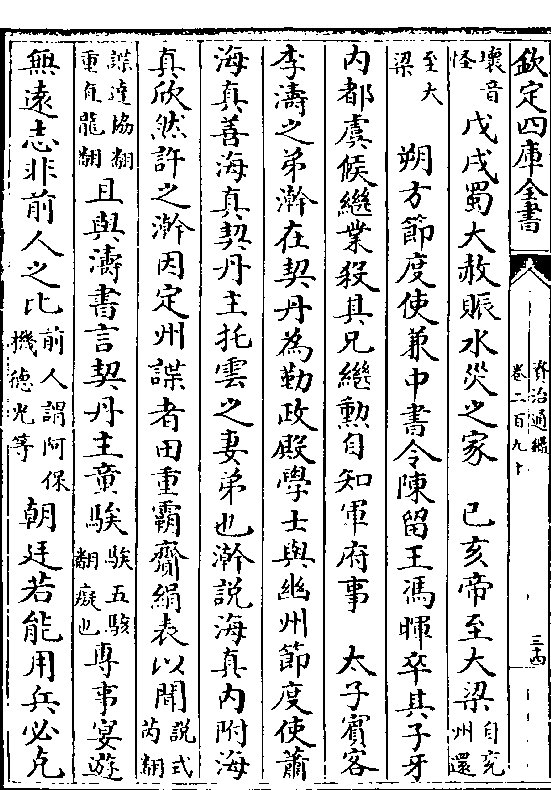 欽定四庫全書
資治通鑑
卷二百九十
三十四
壞音
怪
戊戌蜀大赦賑水災之家　已亥帝至大梁
自兖
州還
至大
梁
朔方節度使兼中書令陳留王馮暉卒其子牙
内都虞候繼業殺其兄繼勲自知軍府事　太子賓客
李濤之弟澣在契丹為勤政殿學士與幽州節度使蕭
海真善海真契丹主托雲之妻弟也澣說海真内附海
真欣然許之澣因定州諜者田重霸齎絹表以聞
說式
芮翻
諜達協翻
重直龍翻
且與濤書言契丹主童騃
騃五駭
翻癡也
專事宴遊
無遠志非前人之比
前人謂阿保
機德光等
朝廷若能用兵必克